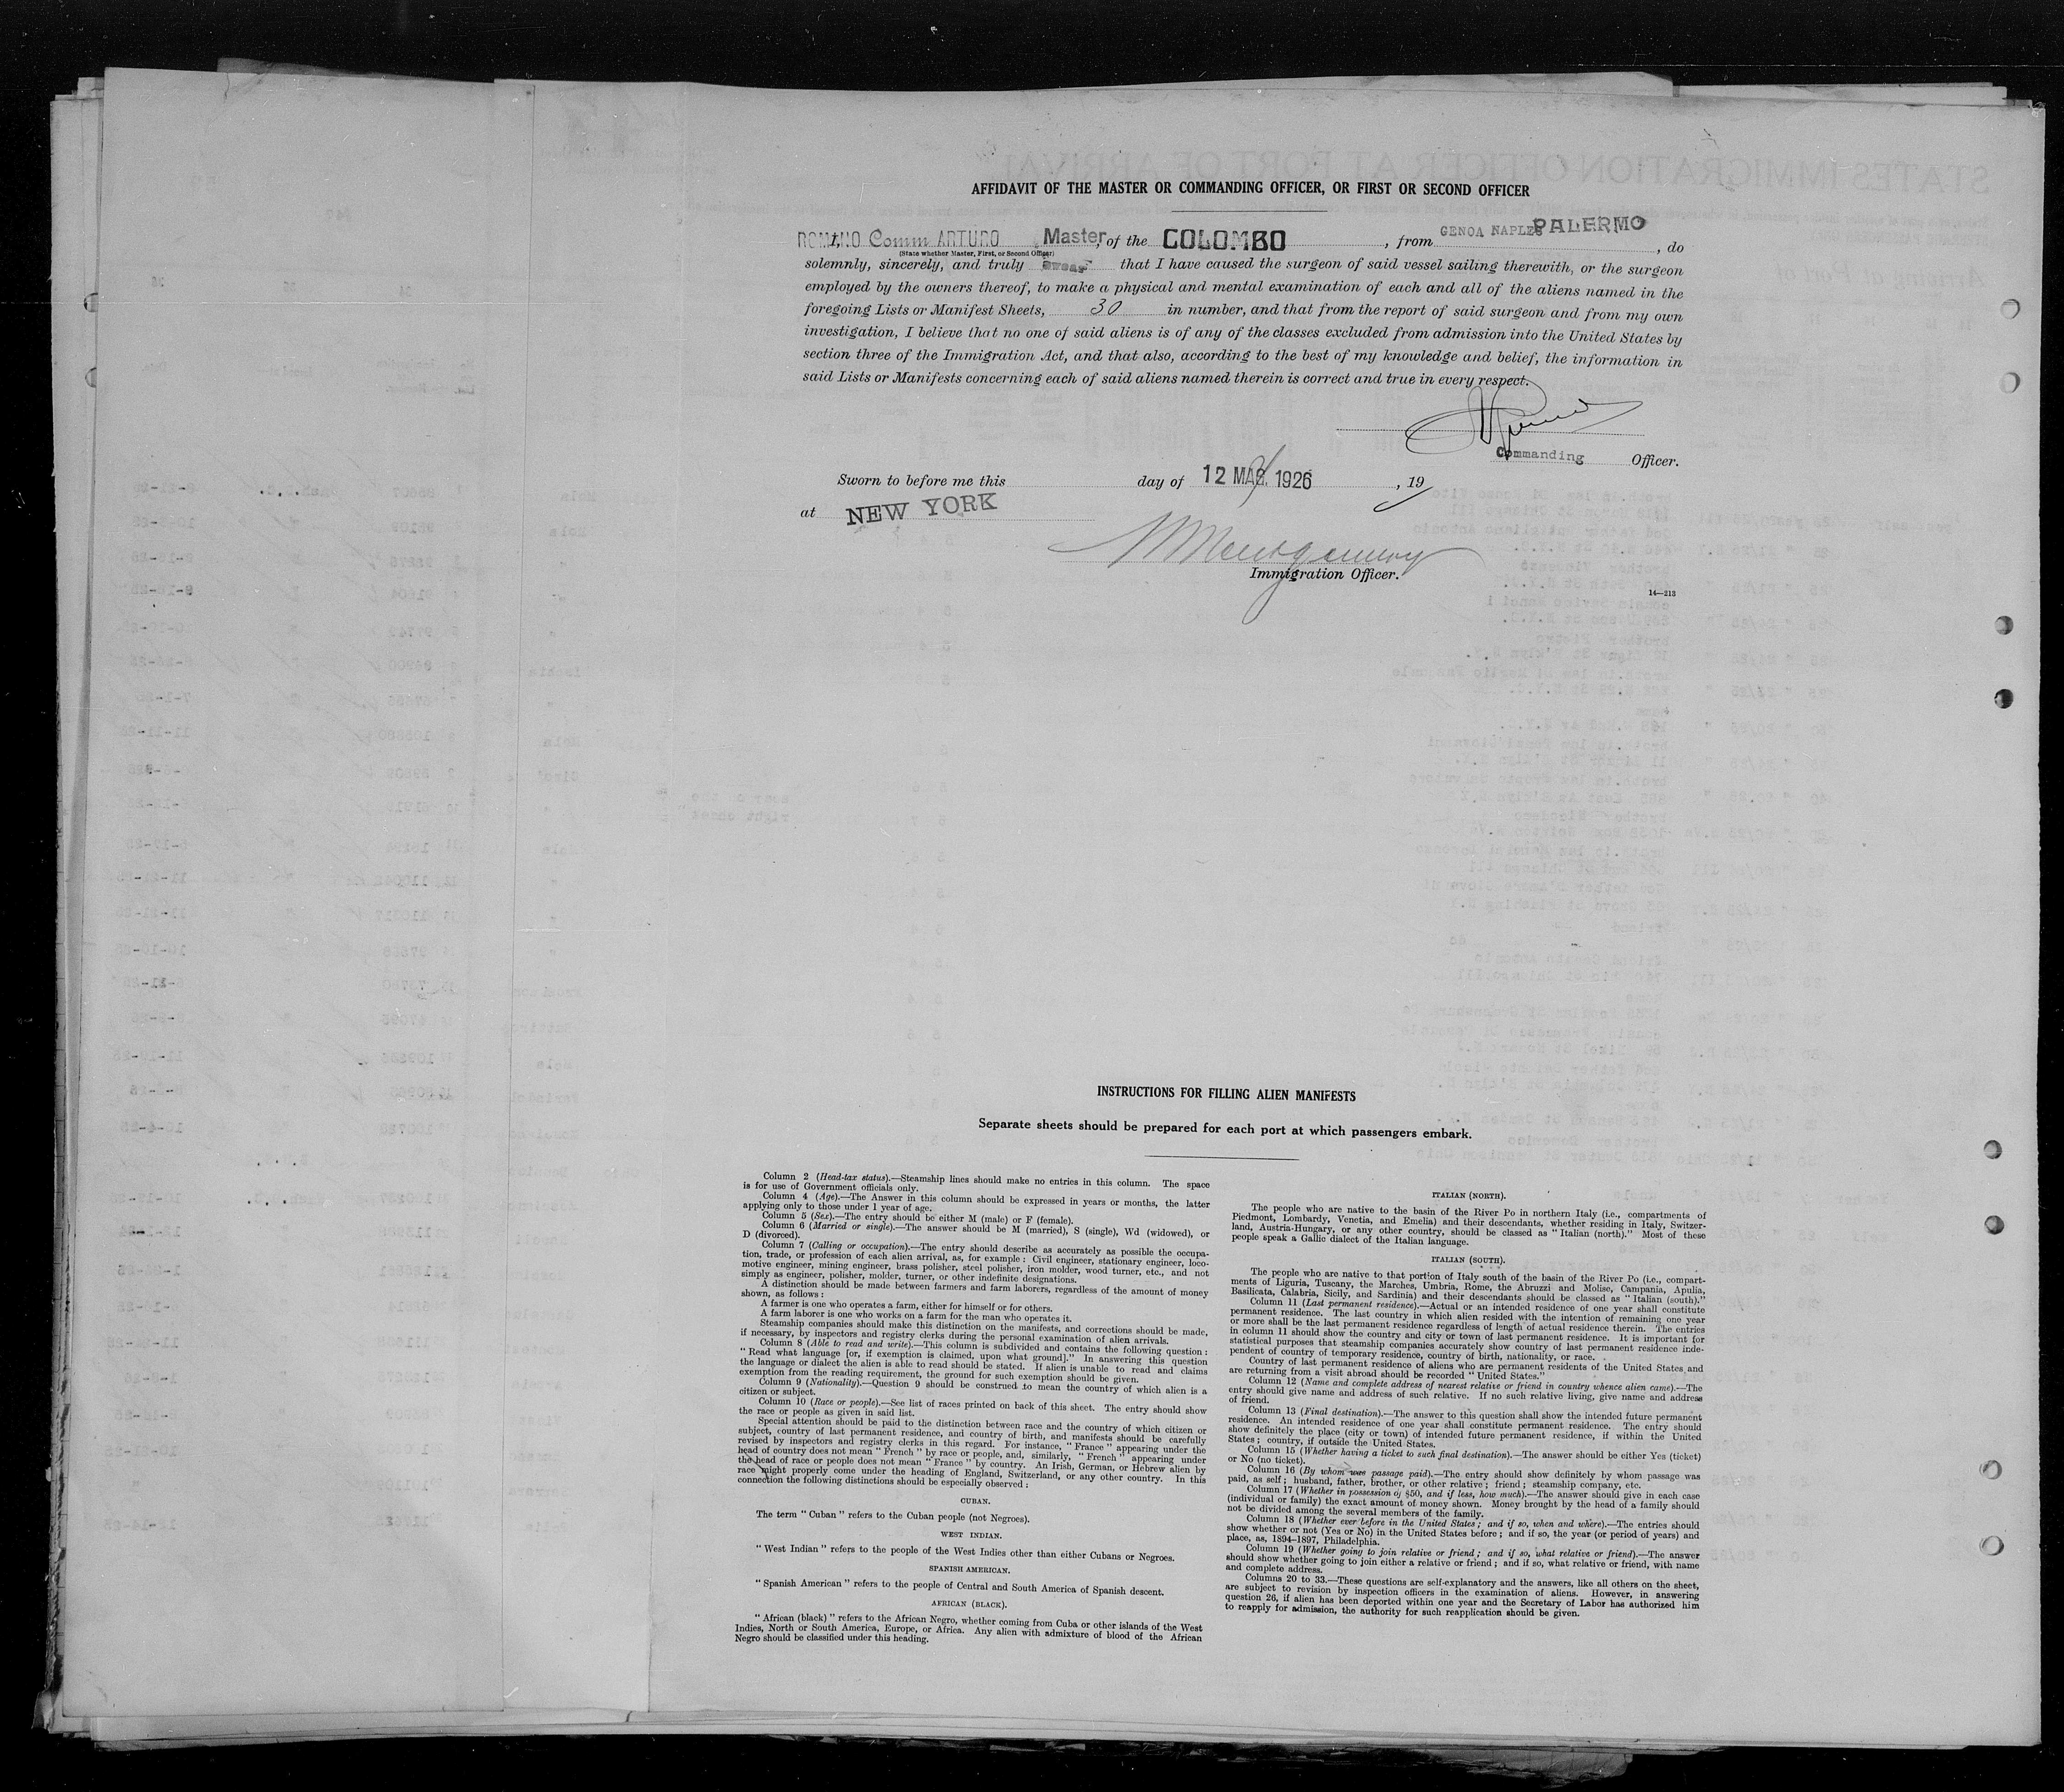 AFFIDAVIT OF THE MASTER OR COMMANDING OFFICER, OR FIRST OR SECOND OFFICER
I, ROMANO Comm ARTURO Master, of the COLOMBO, from GENOA NAPLES PALERMO, do
(State whether Master, First, or Second Officer)
solemnly, sincerely, and truly swear that I have caused the surgeon of said vessel sailing therewith, or the surgeon
employed by the owners thereof, to make a physical and mental examination of each and all of the aliens named in the
foregoing Lists or Manifest Sheets, 30 in number, and that from the report of said surgeon and from my own
investigation, I believe that no one of said aliens is of any of the classes excluded from admission into the United States by
section three of the Immigration Act, and that also, according to the best of my knowledge and belief, the information in
said Lists or Manifests concerning each of said aliens named therein is correct and true in every respect.
Commanding Officer.
Sworn to before me this day of 12 MAR. 1926, 19
at NEW YORK
Montgomery
Immigration Officer.
14—213
INSTRUCTIONS FOR FILLING ALIEN MANIFESTS
Separate sheets should be prepared for each port at which passengers embark.
Column 2 (Head-tax status).—Steamship lines should make no entries in this column. The space
is for use of Government officials only.
Column 4 (Age).—The Answer in this column should be expressed in years or months, the latter
applying only to those under 1 year of age.
Column 5 (Sex).—The entry should be either M (male) or F (female).
Column 6 (Married or single).—The answer should be M (married), S (single), Wd (widowed), or
D (divorced).
Column 7 (Calling or occupation).—The entry should describe as accurately as possible the occupa-
tion, trade, or profession of each alien arrival, as, for example: Civil engineer, stationary engineer, loco-
motive engineer, mining engineer, brass polisher, steel polisher, iron molder, wood turner, etc., and not
simply as engineer, polisher, molder, turner, or other indefinite designations.
A distinction should be made between farmers and farm laborers, regardless of the amount of money
shown, as follows:
A farmer is one who operates a farm, either for himself or for others.
A farm laborer is one who works on a farm for the man who operates it.
Steamship companies should make this distinction on the manifests, and corrections should be made,
if necessary, by inspectors and registry clerks during the personal examination of alien arrivals.
Column 8 (Able to read and write).—This column is subdivided and contains the following question:
"Read what language [or, if exemption is claimed, upon what ground]." In answering this question
the language or dialect the alien is able to read should be stated. If alien is unable to read and claims
exemption from the reading requirement, the ground for such exemption should be given.
Column 9 (Nationality).—Question 9 should be construed to mean the country of which alien is a
citizen or subject.
Column 10 (Race or people).—See list of races printed on back of this sheet. The entry should show
the race or people as given in said list.
Special attention should be paid to the distinction between race and the country of which citizen or
subject, country of last permanent residence, and country of birth, and manifests should be carefully
revised by inspectors and registry clerks in this regard. For instance, "France" appearing under the
head of country does not mean "French" by race or people, and, similarly, "French" appearing under
the head of race or people does not mean "France" by country. An Irish, German, or Hebrew alien by
race might properly come under the heading of England, Switzerland, or any other country. In this
connection the following distinctions should be especially observed:
CUBAN.
The term "Cuban" refers to the Cuban people (not Negroes).
WEST INDIAN.
"West Indian" refers to the people of the West Indies other than either Cubans or Negroes.
SPANISH AMERICAN.
"Spanish American" refers to the people of Central and South America of Spanish descent.
AFRICAN (BLACK).
"African (black)" refers to the African Negro, whether coming from Cuba or other islands of the West
Indies, North or South America, Europe, or Africa. Any alien with admixture of blood of the African
Negro should be classified under this heading.
ITALIAN (NORTH).
The people who are native to the basin of the River Po in northern Italy (i.e., compartments of
Piedmont, Lombardy, Venetia, and Emelia) and their descendants, whether residing in Italy, Switzer-
land, Austria-Hungary, or any other country, should be classed as "Italian (north)." Most of these
people speak a Gallic dialect of the Italian language.
ITALIAN (SOUTH).
The people who are native to that portion of Italy south of the basin of the River Po (i.e., compart-
ments of Liguria, Tuscany, the Marches, Umbria, Rome, the Abruzzi and Molise, Campania, Apulia,
Basilicata, Calabria, Sicily, and Sardinia) and their descendants should be classed as "Italian (south)."
Column 11 (Last permanent residence).—Actual or an intended residence of one year shall constitute
permanent residence. The last country in which alien resided with the intention of remaining one year
or more shall be the last permanent residence regardless of length of actual residence therein. The entries
in column 11 should show the country and city or town of last permanent residence. It is important for
statistical purposes that steamship companies accurately show country of last permanent residence inde-
pendent of country of temporary residence, country of birth, nationality, or race.
Country of last permanent residence of aliens who are permanent residents of the United States and
are returning from a visit abroad should be recorded "United States."
Column 12 (Name and complete address of nearest relative or friend in country whence alien came).—The
entry should give name and address of such relative. If no such relative living, give name and address
of friend.
Column 13 (Final destination).—The answer to this question shall show the intended future permanent
residence. An intended residence of one year shall constitute permanent residence. The entry should
show definitely the place (city or town) of intended future permanent residence, if within the United
States; country, if outside the United States.
Column 15 (Whether having a ticket to such final destination).—The answer should be either Yes (ticket)
or No (no ticket).
Column 16 (By whom was passage paid).—The entry should show definitely by whom passage was
paid, as self; husband, father, brother, or other relative; friend; steamship company, etc.
Column 17 (Whether in possession of $50, and if less, how much).—The answer should give in each case
(individual or family) the exact amount of money shown. Money brought by the head of a family should
not be divided among the several members of the family.
Column 18 (Whether ever before in the United States; and if so, when and where).—The entries should
show whether or not (Yes or No) in the United States before; and if so, the year (or period of years) and
place, as, 1894-1897, Philadelphia.
Column 19 (Whether going to join relative or friend; and if so, what relative or friend).—The answer
should show whether going to join either a relative or friend; and if so, what relative or friend, with name
and complete address.
Columns 20 to 33.—These questions are self-explanatory and the answers, like all others on the sheet,
are subject to revision by inspection officers in the examination of aliens. However, in answering
question 26, if alien has been deported within one year and the Secretary of Labor has authorized him
to reapply for admission, the authority for such reapplication should be given.